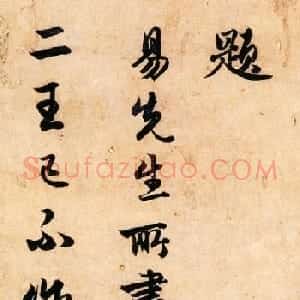 題
易先生所書
二王已不
Shufazidao.COM